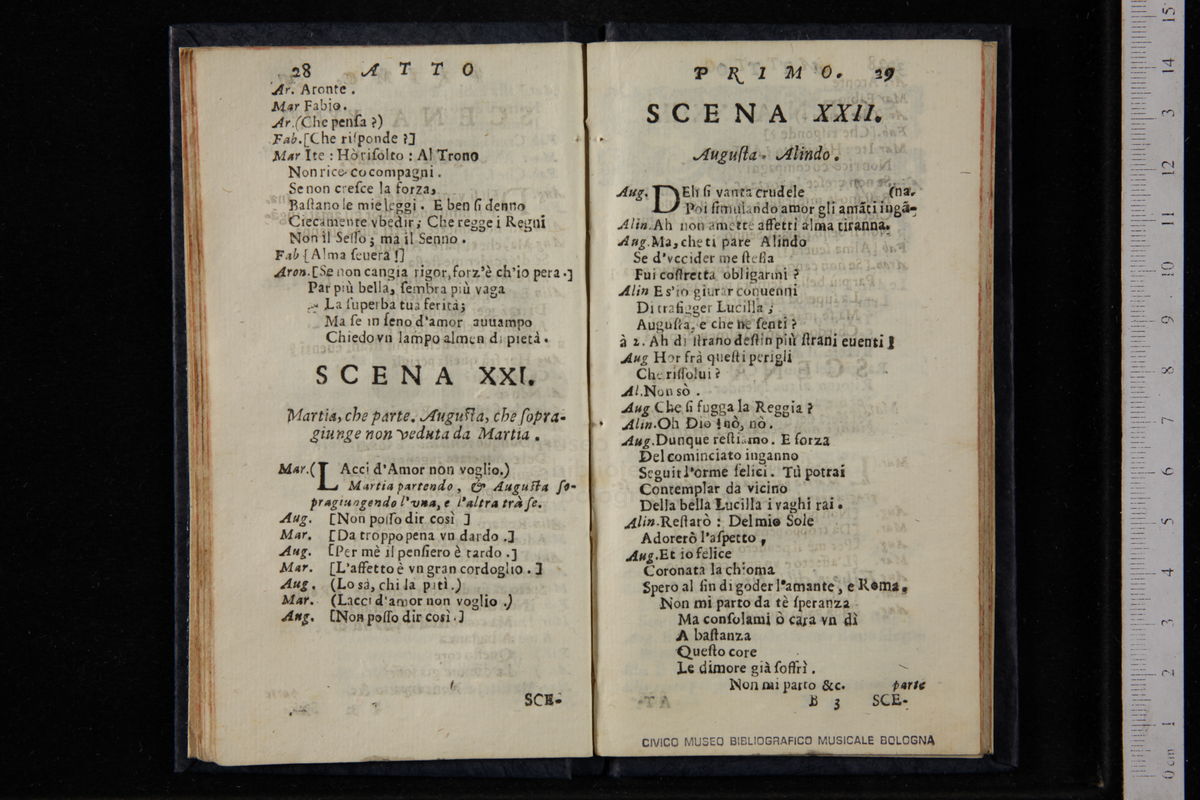 28 ATTO
Ar. Aronte.
Mar Fabio.
Ar. (Che penſa ?)
Fab. [Che riſponde ?]
Mar Ite : Hò riſolto : Al Trono
Non rice co compagni.
Se non creſce la forza,
Baſtano le mie leggi. E ben ſi denno
Ciecamente vbedir; Che regge i Regni
Non il Seſſo; ma il Senno.
Fab [Alma ſeuera !]
Aron. [Se non cangia rigor, forz'è ch'io pera.]
Par più bella, ſembra più vaga
La ſuperba tua ferità;
Ma ſe in ſeno d'amor auuampo
Chiedo vn lampo almen di pietà.
SCENA XXI.
Martia, che parte. Auguſta, che ſopra-
giunge non veduta da Martia.
Mar. (LAcci d'Amor non voglio.)
Martia partendo, & Auguſta ſo-
pragiungendo l'vna, e l'altra trà ſe.
Aug. [Non poſſo dir così ]
Mar. [Da troppo pena vn dardo.]
Aug. [Per mè il penſiero è tardo.]
Mar. [L'affetto è vn gran cordoglio.]
Aug. (Lo sà, chi la patì.)
Mar. (Lacci d'amor non voglio.)
Aug. [Non poſſo dir così.]
SCE-
PRIMO. 29
SCENA XXII.
Auguſta. Alindo.
Aug. DEh ſi vanta crudele (na.
Poi ſimulando amor gli amãti ingã-
Alin. Ah non amette affetti alma tiranna.
Aug. Ma, che ti pare Alindo
Se d'vccider me ſteſſa
Fui coſtretta obligarmi ?
Alin E s'io giurar conuenni
Di trafigger Lucilla ;
Auguſta, e che ne ſenti ?
à 2. Ah di ſtrano deſtin più ſtrani euenti !
Aug Hor frà queſti perigli
Che riſſolui ?
Al. Non sò.
Aug Che ſi fugga la Reggia ?
Alin. Oh Dio ! nò, nò.
Aug. Dunque reſtiamo. E forza
Del cominciato inganno
Seguit l'orme felici. Tù potrai
Contemplar da vicino
Della bella Lucilla i vaghi rai.
Alin. Reſtarò : Del mio Sole
Adorerò l'aſpetto,
Aug. Et io felice
Coronata la chioma
Spero al fin di goder l'amante, e Roma.
Non mi parto da tè ſperanza
Ma conſolami ò cara vn dì
A baſtanza
Queſto core
Le dimore già ſoffrì.
Non mi parto &c. parte
B 3 SCE-
CIVICO MUSEO BIBLIOGRAFICO MUSICALE BOLOGNA
0 cm 1 2 3 4 5 6 7 8 9 10 11 12 13 14 15